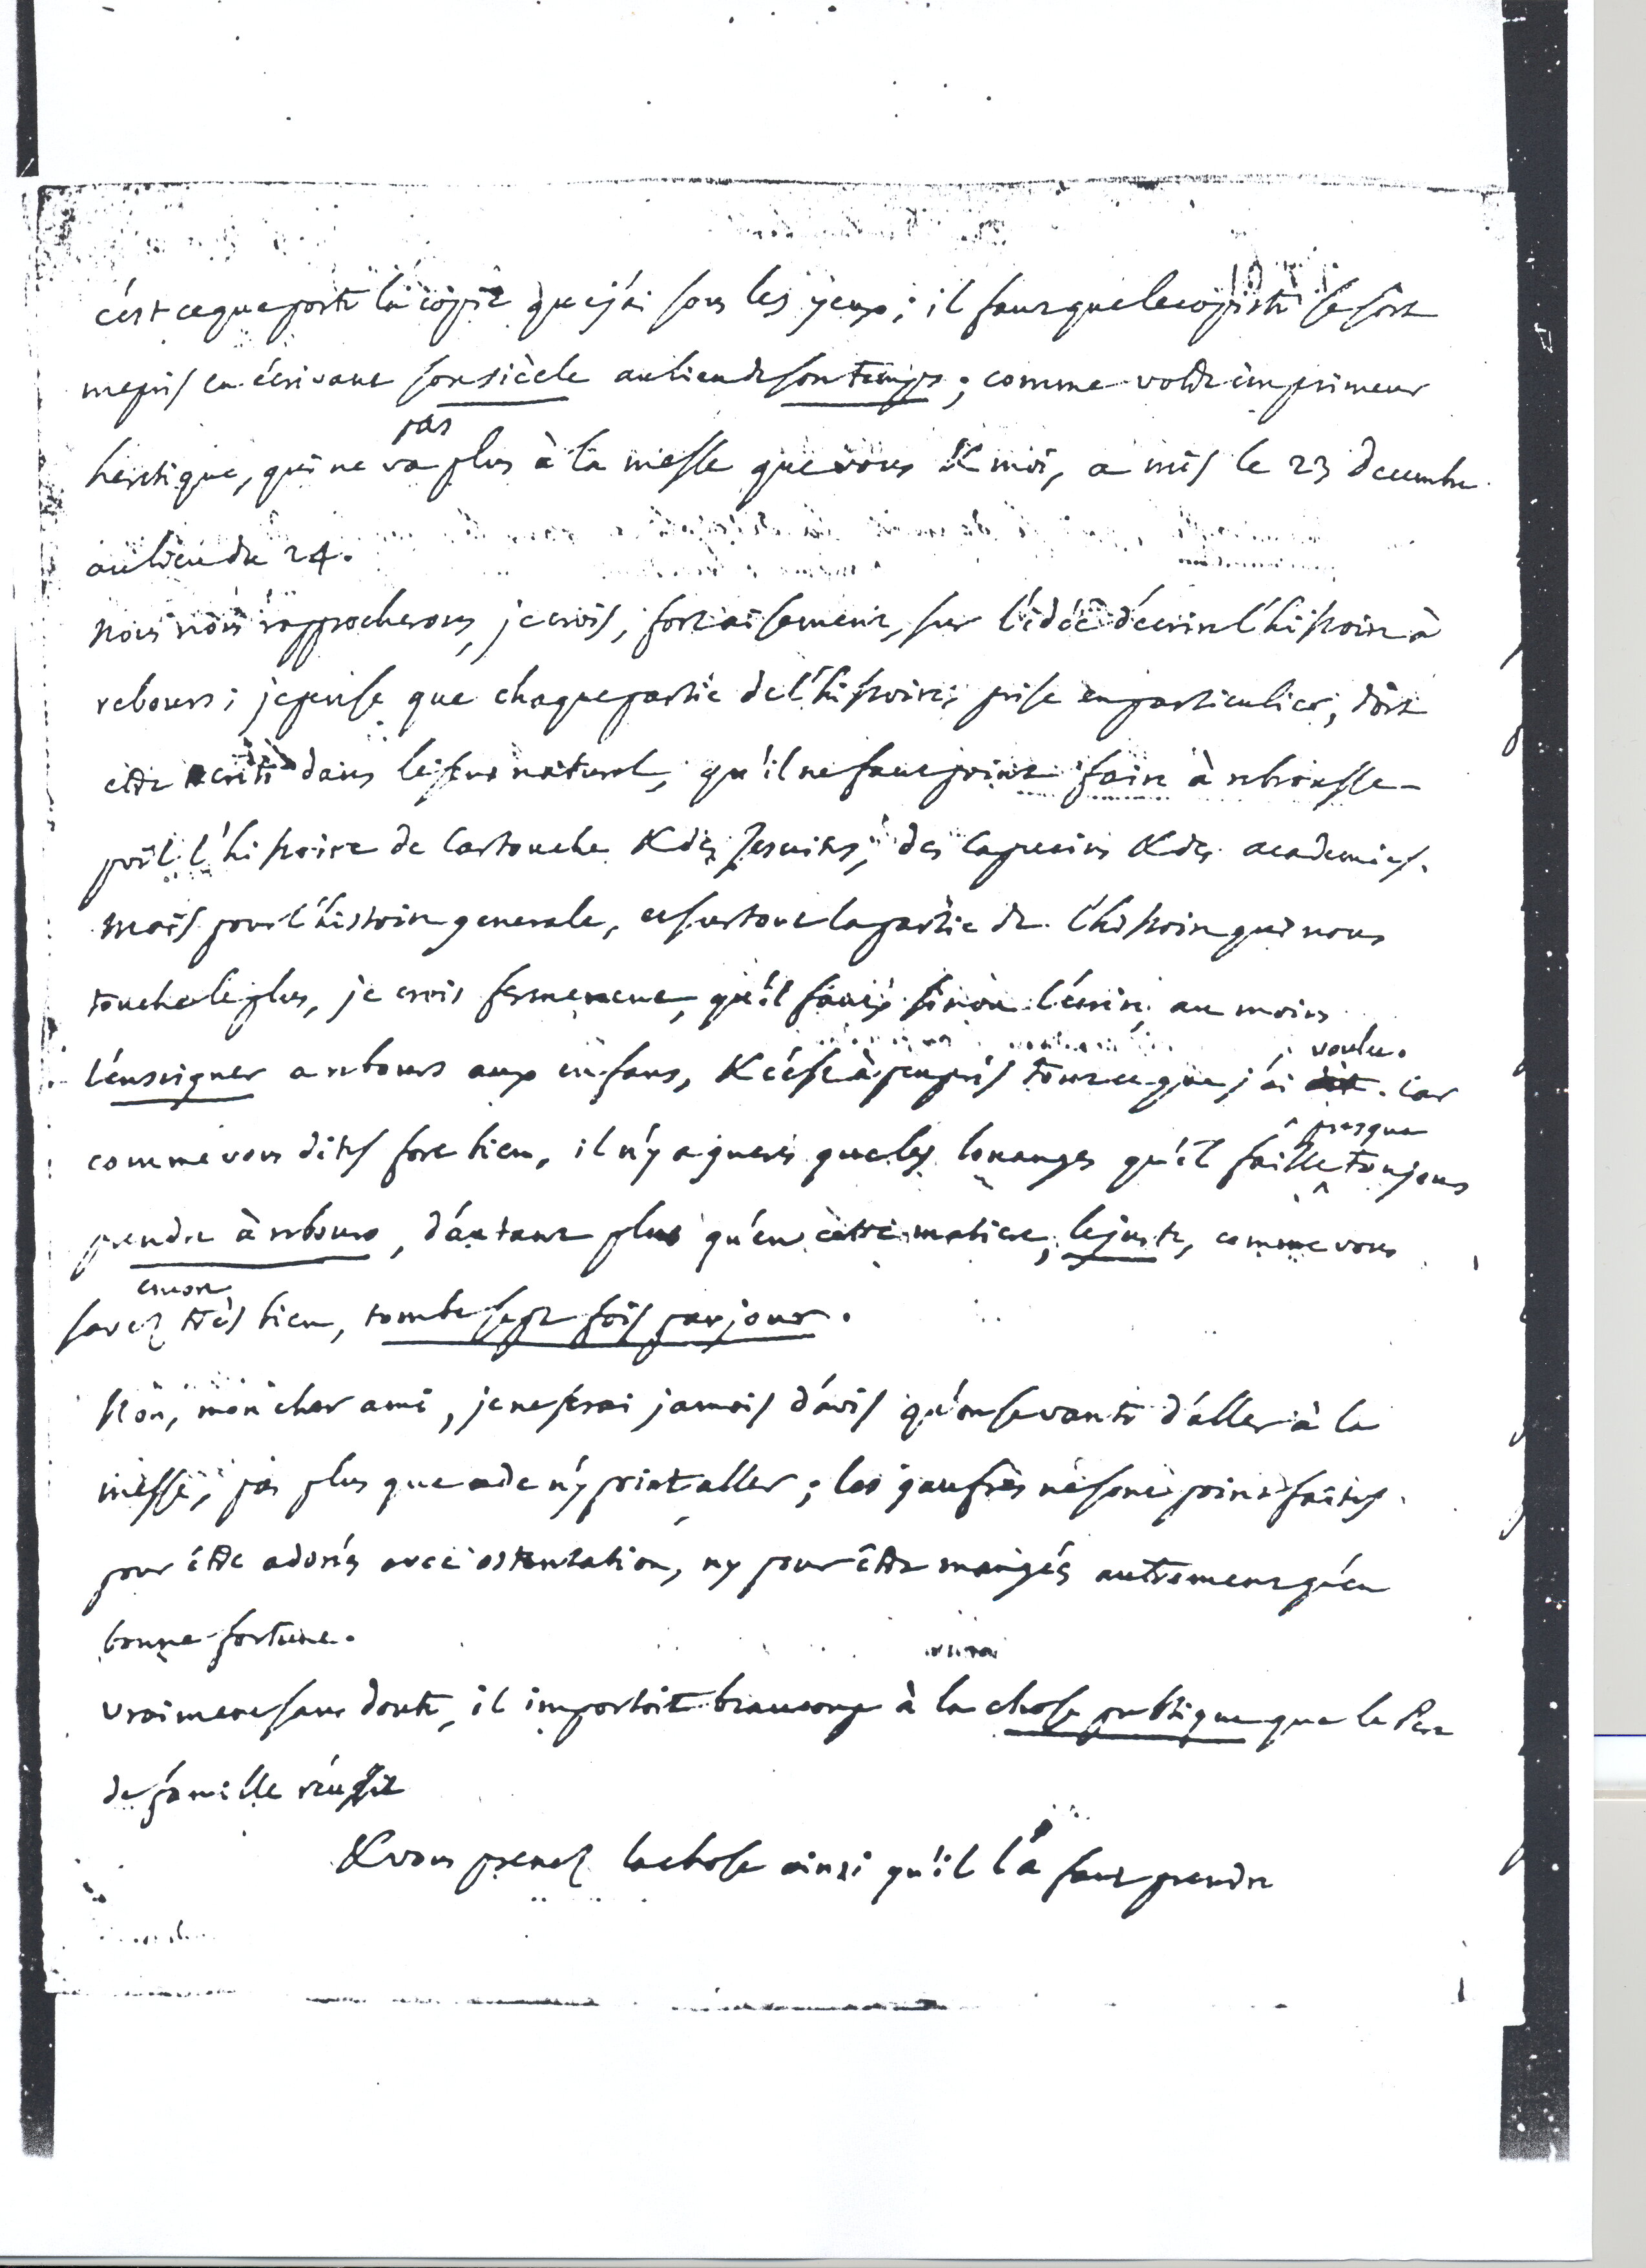 c'est ce que porte la copie que j'ai sous les yeux; il faut que le copiste se soit
mepris en écrivant son siècle au lieu de son temps; comme votre imprimeur
heretique, qui ne va pas plus à la messe que vous & moi, a mis le 23 decembre
au lieu du 24.
Nous nous rapprocherons, je crois, fort aisement, sur l'idée d'écrire l'histoire à
rebours; je pense que chaque partie de l'histoire, prise en particulier, doit
etre ecrite dans le sens naturel, qu'il ne faut point faire à rebrousse-
poil l'histoire de Cartouche & des Jesuites, des capucins & des academies.
Mais pour l'histoire generale, et surtout la partie de l'histoire qui nous
touche le plus, je crois fermement, qu'il faut, sinon l'écrire, au moins
l'enseigner a rebours aux enfans, & c'est à peu près tout ce que j'ai dit voulu. Car
comme vous dites fort bien, il n'y a gueres que les louanges qu'il faille presque toujours
prendre à rebours, d'autant plus qu'en cette matiere, le juste, comme vous
savez encore très bien, tombe sept fois par jour.
Non, mon cher ami, je ne serai jamais d'avis qu'on se vante d'aller à la
messe, pas plus que de n'y point aller; les gaufres ne sont point faites
pour être adorés avec ostentation, ny pour être mangés autrement qu'en
bonne fortune.
vraiment sans doute, il importoit beaucoup à la chose publique que le Pere
de famille réussit
& vous prenez la chose ainsi qu'il la faut prendre